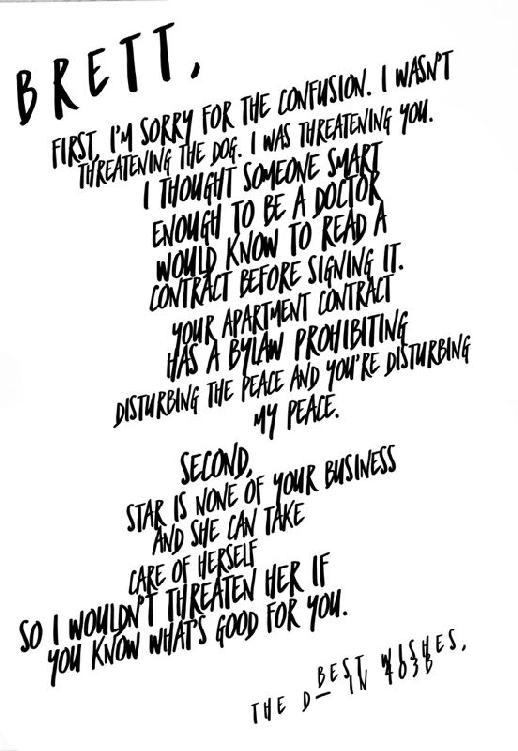 BRETT,
FIRST, I'M SORRY FOR THE CONFUSION. I WASN'T
THREATENING THE DOG. I WAS THREATENING YOU.
I THOUGHT SOMEONE SMART
ENOUGH TO BE A DOCTOR
WOULD KNOW TO READ A
CONTRACT BEFORE SIGNING IT.
YOUR APARTMENT CONTRACT
HAS A BYLAW PROHIBITING
DISTURBING THE PEACE AND YOU'RE DISTURBING
MY PEACE.
SECOND,
STAR IS NONE OF YOUR BUSINESS
AND SHE CAN TAKE
CARE OF HERSELF
SO I WOULDN'T THREATEN HER IF
YOU KNOW WHAT'S GOOD FOR YOU.
BEST WISHES,
THE D— IN 403B